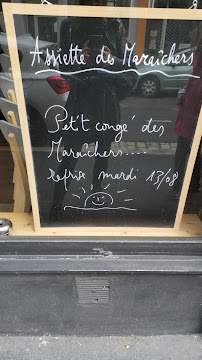 Assiette des Maraîchers
Petit congé des
Maraîchers....
reprise mardi 13/08